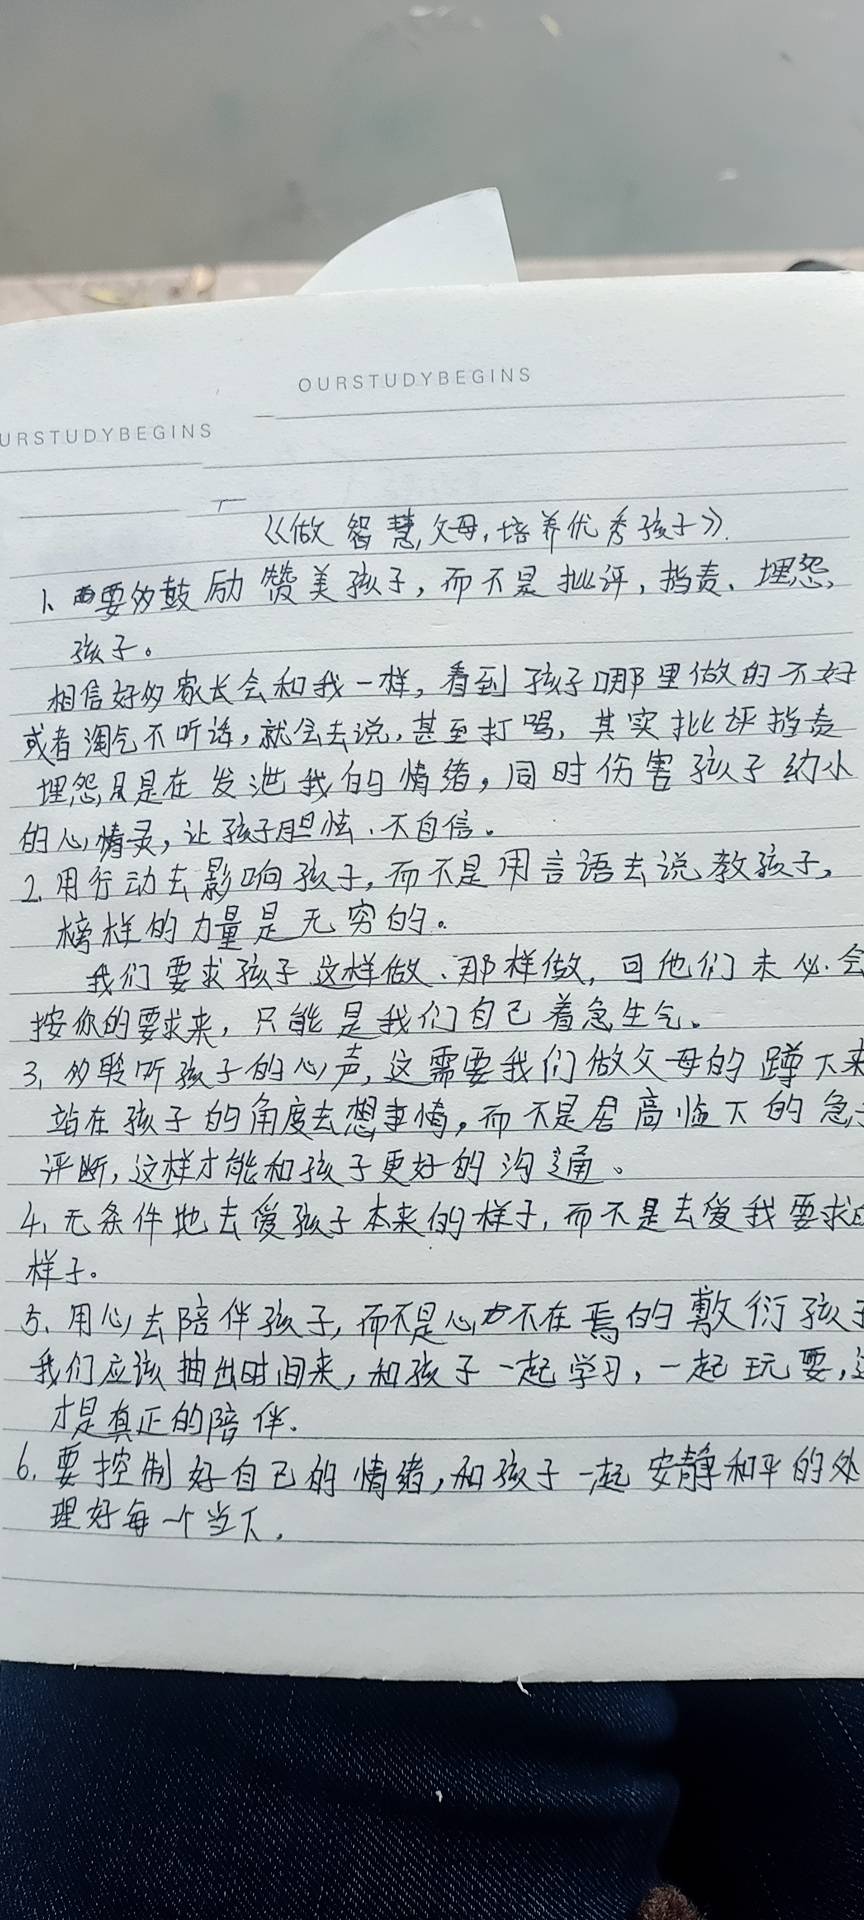 OURSTUDYBEGINS
URSTUDYBEGINS
《做智慧父母,培养优秀孩子》.
1、要多鼓励赞美孩子，而不是批评，指责、埋怨,
孩子。
相信好多家长会和我一样，看到孩子哪里做的不好
或者淘气不听话，就会去说，甚至打骂，其实批评指责
埋怨只是在发泄我们的情绪，同时伤害孩子幼小
的心灵，让孩子胆怯、不自信。
2、用行动去影响孩子，而不是用言语去说教孩子，
榜样的力量是无穷的。
我们要求孩子这样做、那样做，可他们未必会
按你的要求来，只能是我们自己着急生气。
3、多聆听孩子的心声，这需要我们做父母的蹲下来
站在孩子的角度去想事情，而不是居高临下的急
评断，这样才能和孩子更好的沟通。
4、无条件地去爱孩子本来的样子，而不是去爱我要求
样子。
5、用心去陪伴孩子，而不是心不在焉的敷衍孩子
我们应该抽出时间来，和孩子一起学习，一起玩耍，
才是真正的陪伴.
6、要控制好自己的情绪，和孩子一起安静和平的处
理好每一个当下.